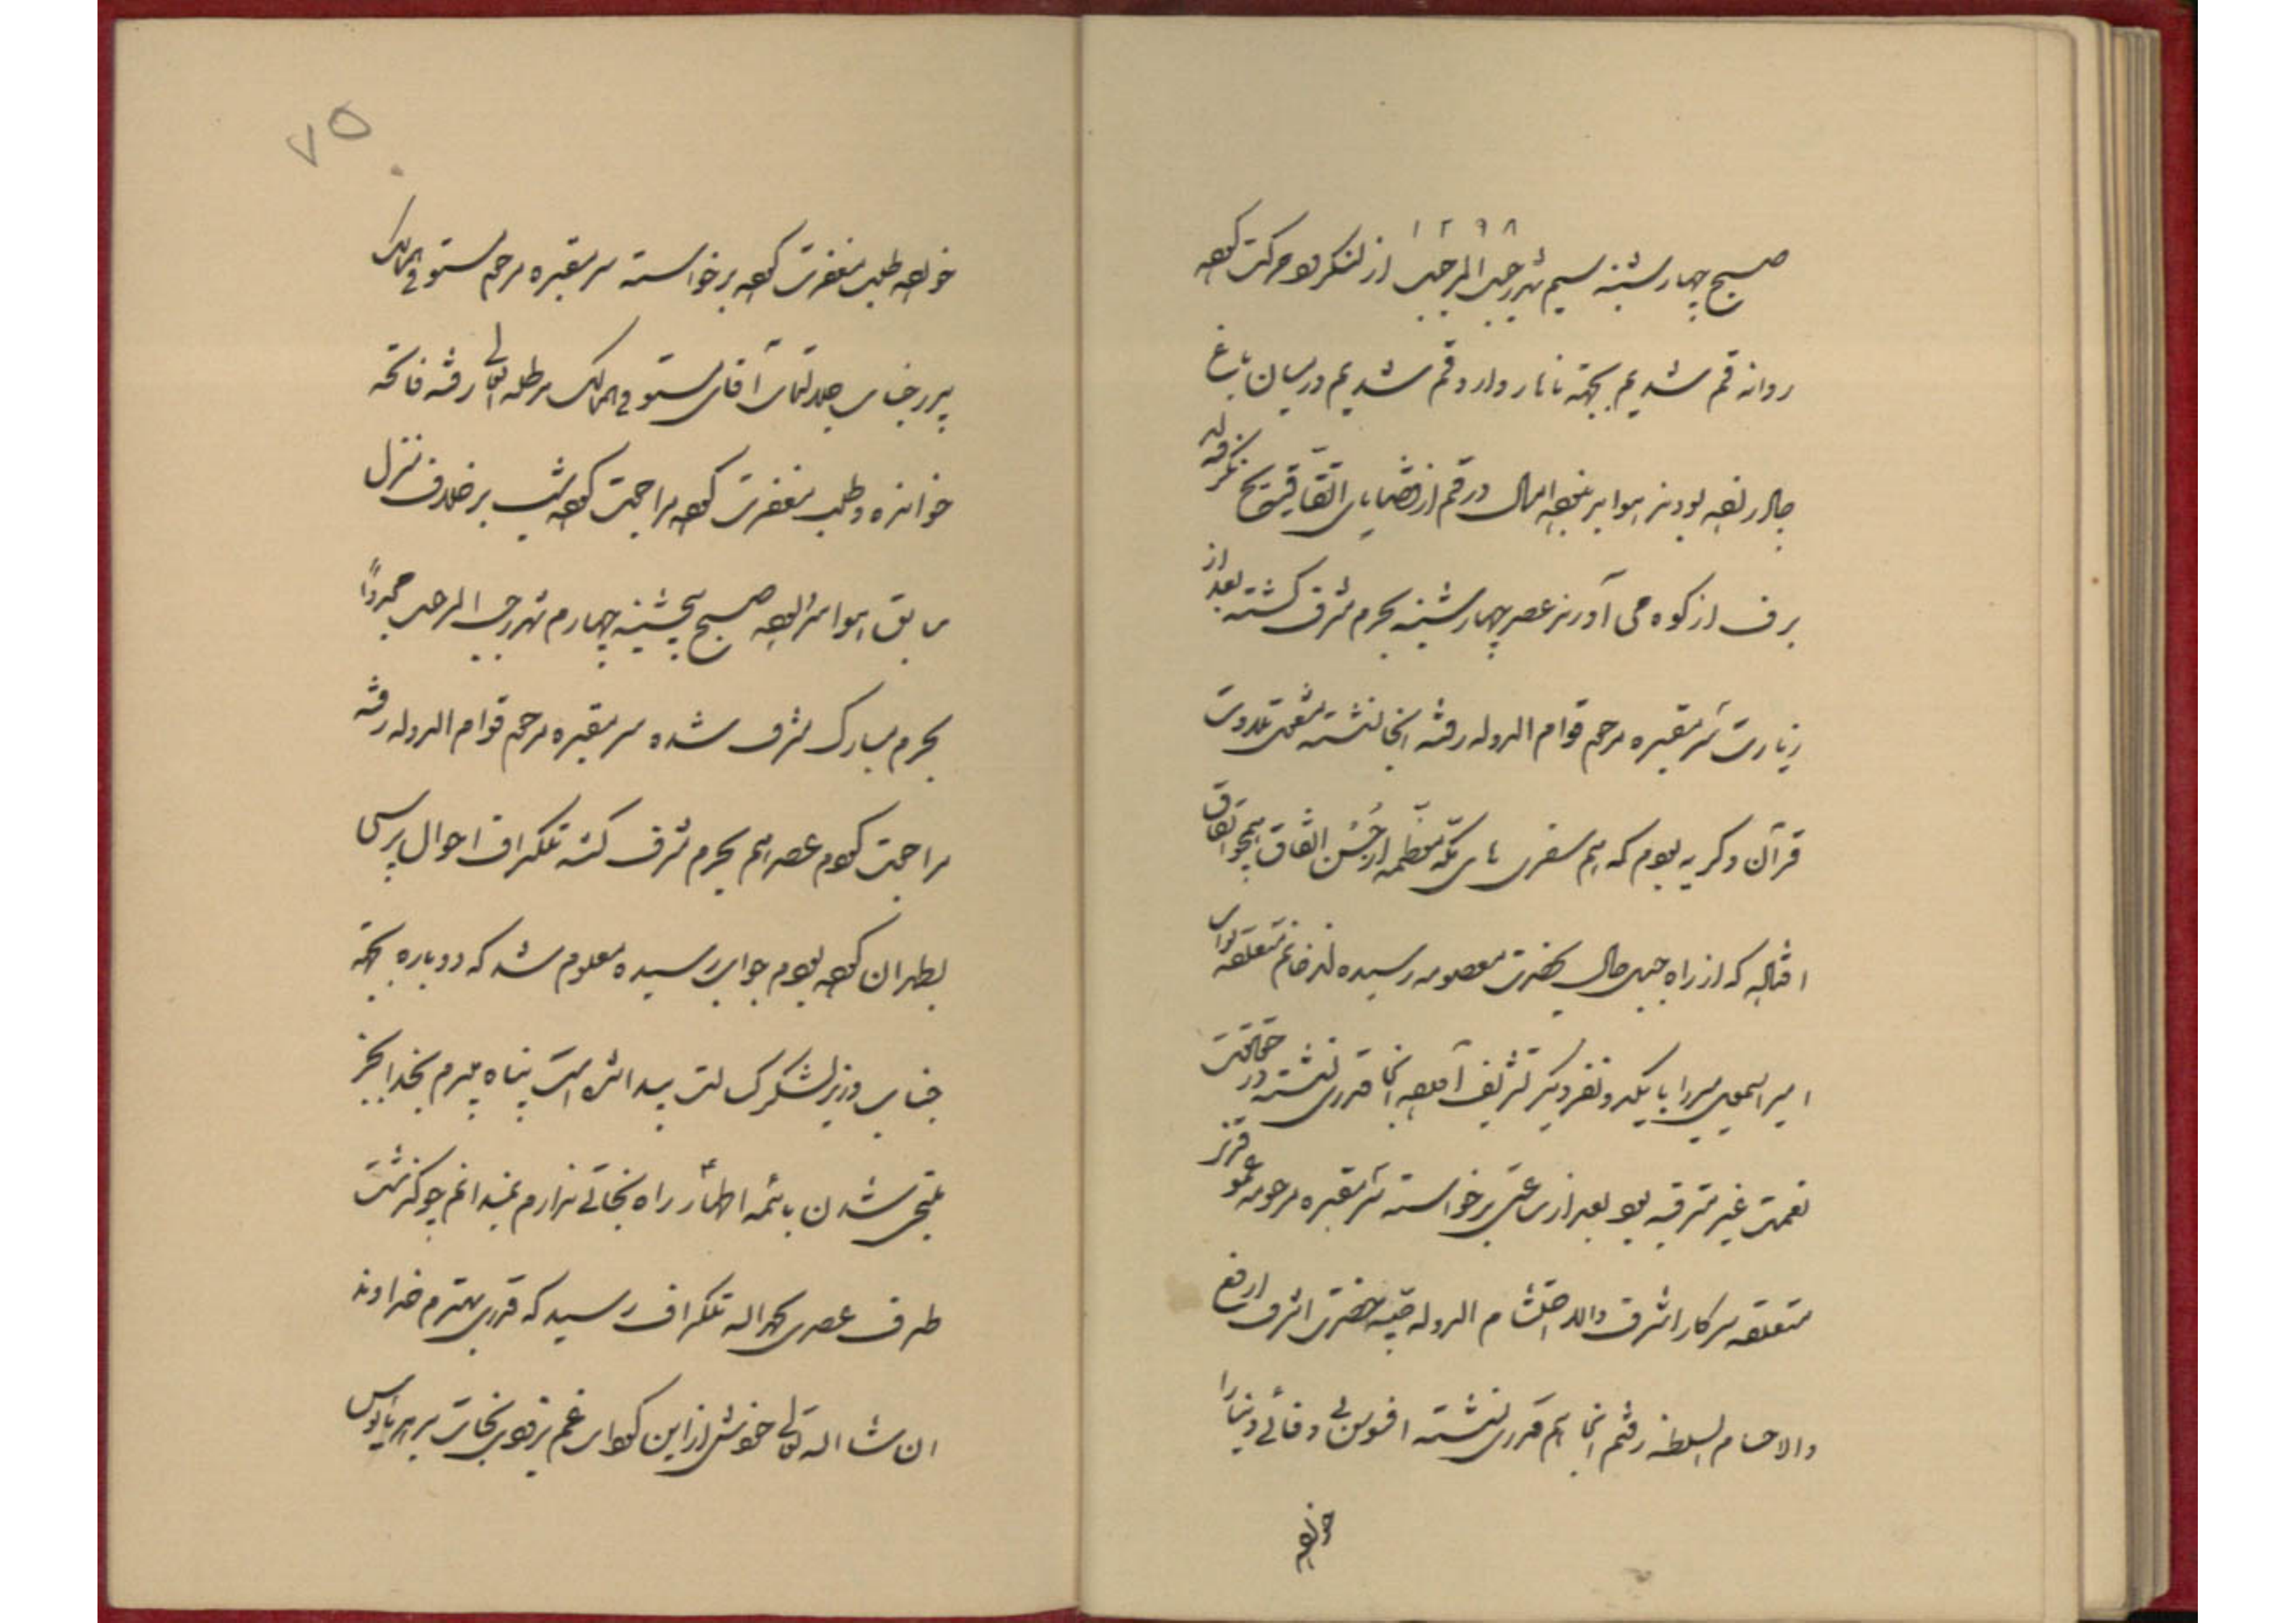 ۱۲۹۸
صبح چهارشنبه سیم شهر رجب المرجب از لنکرود حرکت کرده
روانه قم شدیم بجهة ناهار وارد قم شدیم در میان باغ
چادر زده بودند هوا ابر بوده امسال در قم از قضایای اتفاقیه یخ نکرفته اند
برف از کوه می آورند عصر چهارشنبه بحرم مشرف کشته بعد از
زیارت سر مقبره مرحوم قوام الدوله رفته انجا نشسته مشغول تلاوت
قرآن و کریه بودم که هم سفری های مکه معظمه از حُسن اتفاق
که از راه جبل حال بحضرت معصومه رسیده اند خانم متعلقه نواب
امیر اسمعیل میرزا با یک دو نفر دیکر تشریف آورده انجا قدری نشسته در حقیقت
نعمت غیر مترقبه بود بعد از ساعتی برخواسته سر مقبره مرحومه
متعلقه سرکار اشرف والا احتشام الدوله صبیه حضرت اشرف ارفع
والا حسام السلطنه رفتم انجا هم قدری نشسته افسوس بی وفائی دنیا را
خورده
۷۵
خورده طلب مغفرت کرده برخواسته سر مقبره مرحوم مستوفی الممالک
پدر جناب جلالتمآب آقای مستوفی الممالک مد ظله العالی رفته فاتحه
خوانده و طلب مغفرت کرده مراجعت کرده شب بر خلاف منزل
سابق هوا سرد بوده صبح پنجشنبه چهارم شهر رجب المرجب مجدداً
بحرم مبارک مشرف شده سر مقبره مرحوم قوام الدوله رفته
مراجعت کردم عصر هم بحرم مشرف کشته تلکراف احوال پرسی
بطهران کرده بودم جوابی رسیده معلوم شد که دوباره بجهة
جناب وزیر لشکر کسالت پیدا شده است پناه میبرم بخدا بجز
ملتجی شدن بائمه اطهار ع راه نجاتی ندارم نمیدانم چه کذشت
طرف عصری بحمدالله تلکراف رسید که قدری بهترم خداوند
ان شاالله تعالی خودش از این کرداب غم بزودی نجات بدهد